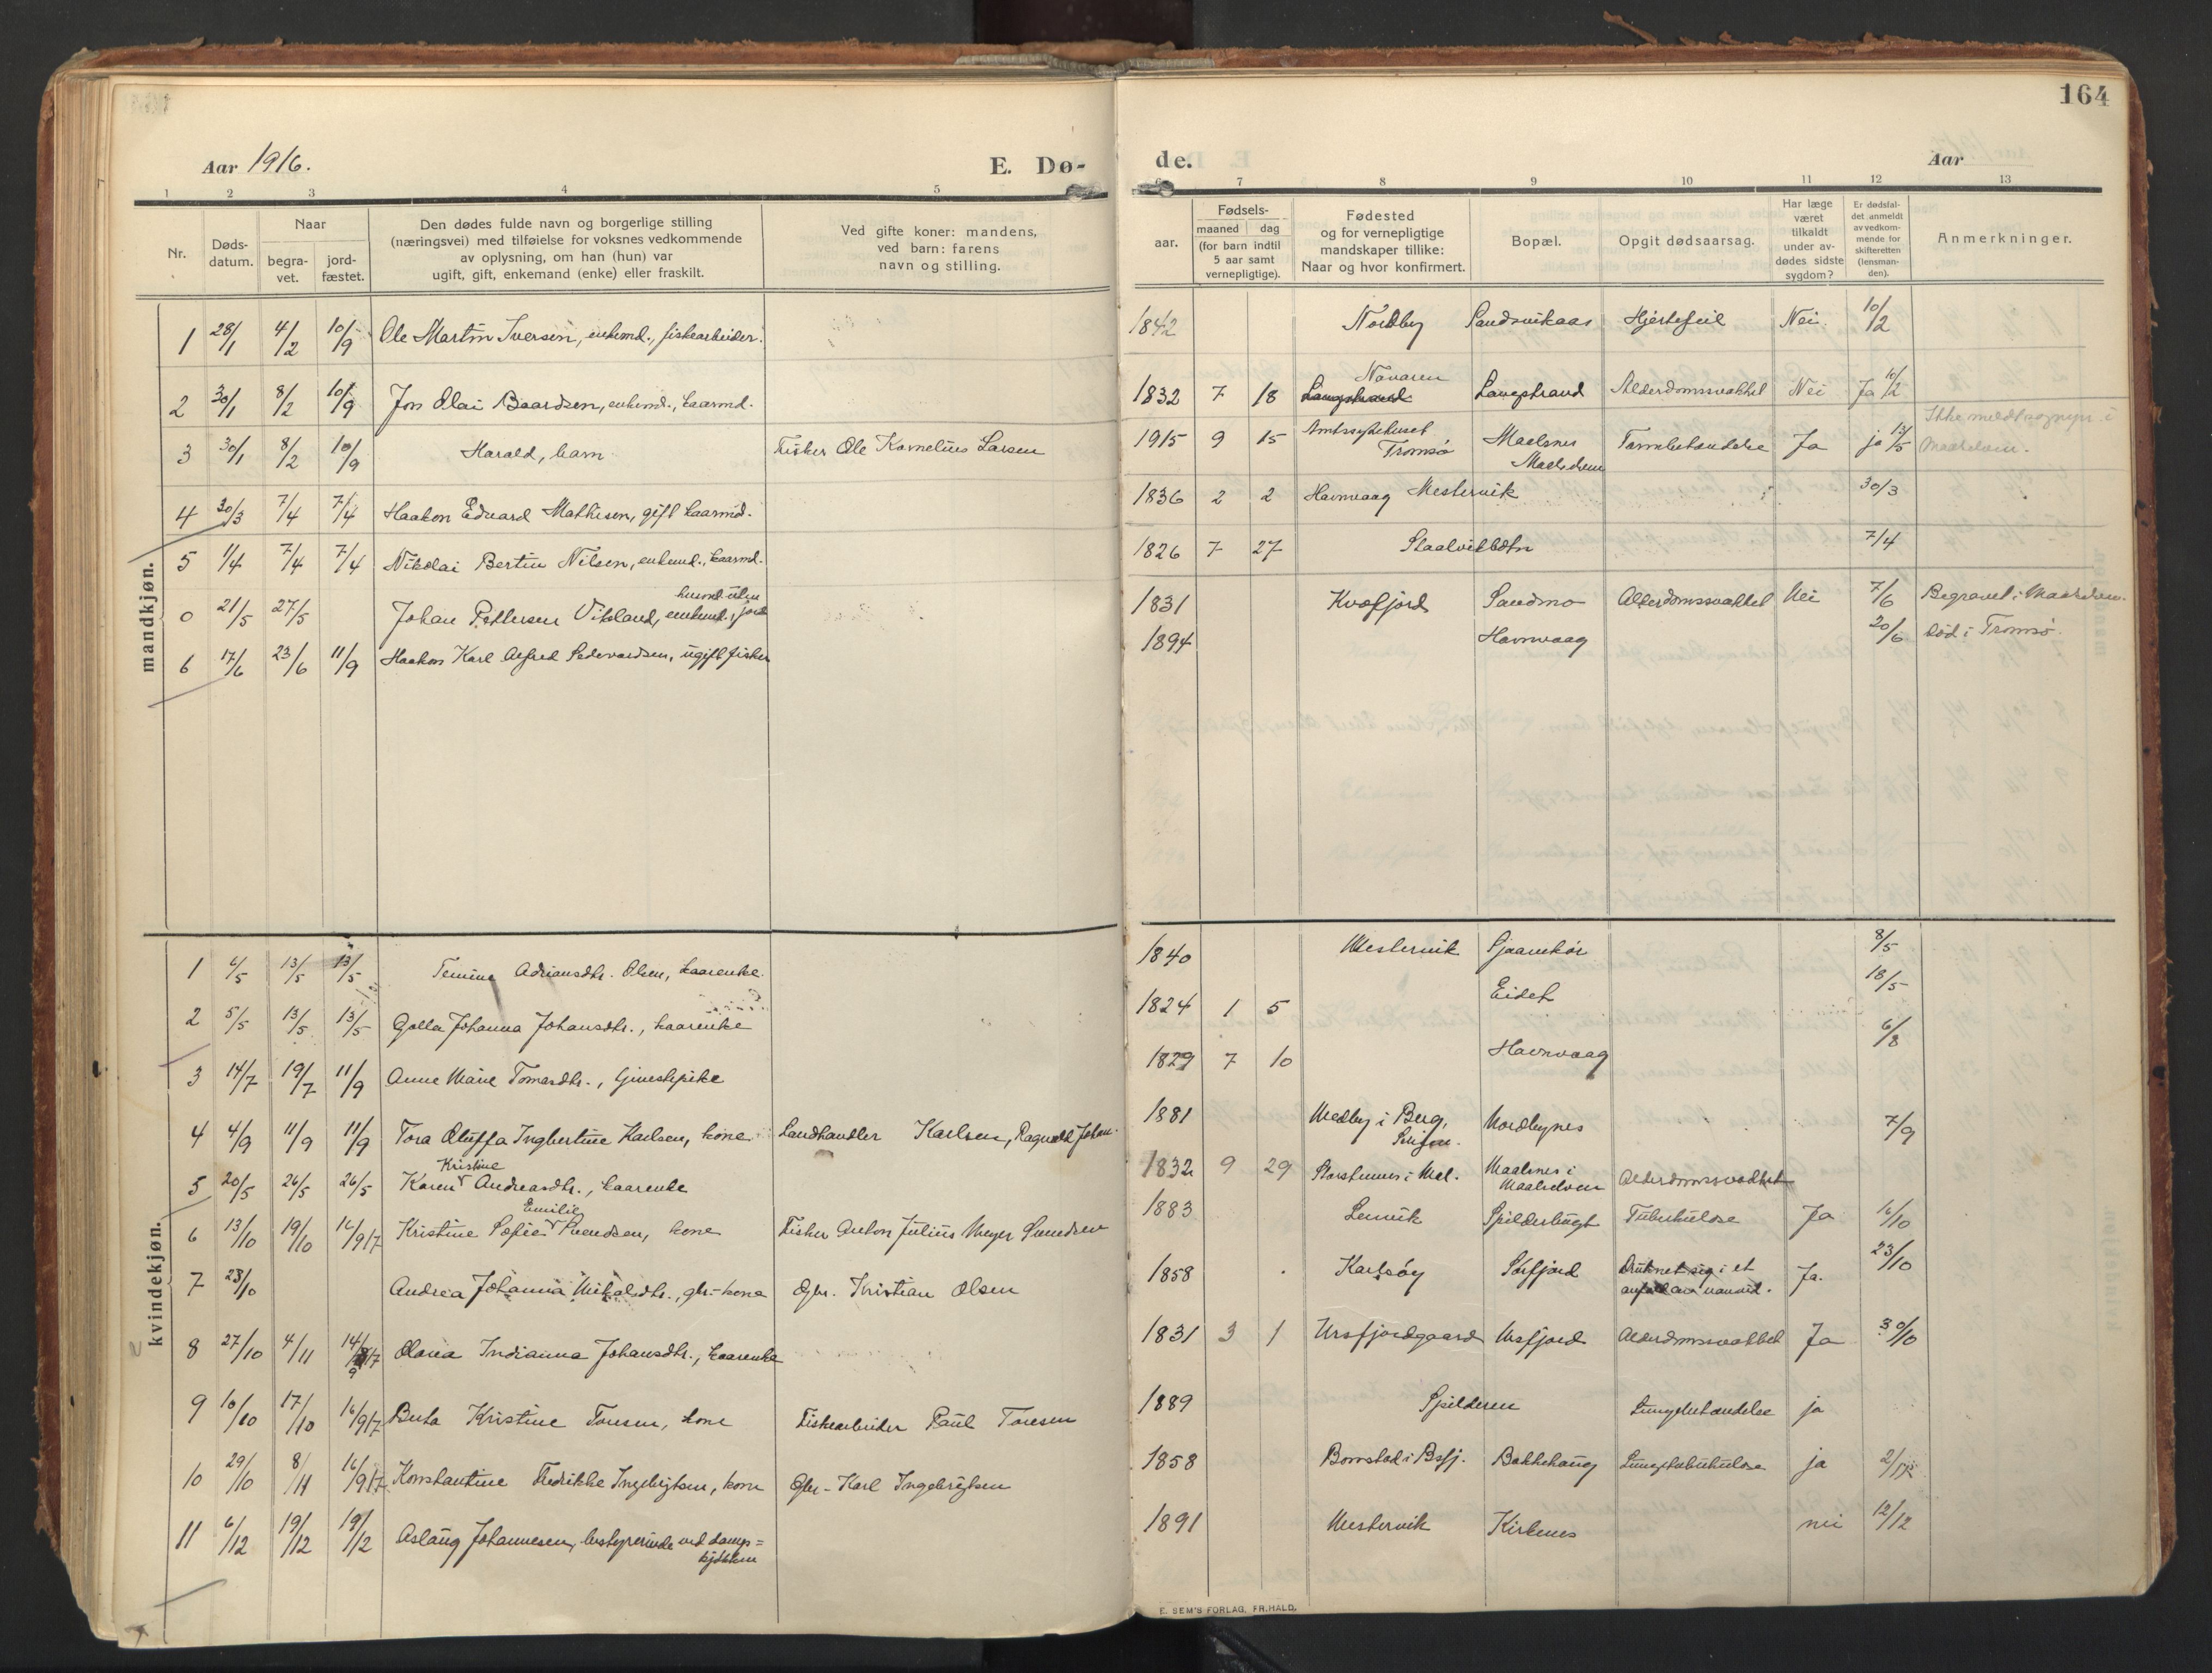 164
Aar 1916.
E. Dø-
de.
Aar
1 2 3 4 5
6 7 8 9 10 11 12 13
Nr.
Døds-
datum.
Naar
begra-
vet.
jord-
fæstet.
Den dødes fulde navn og borgerlige stilling
(næringsvei) med tilføielse for voksnes vedkommende
av oplysning, om han (hun) var
ugift, gift, enkemand (enke) eller fraskilt.
Ved gifte koner: mandens,
ved barn: farens
navn og stilling.
aar.
Fødsels-
maaned dag
(for barn indtil
5 aar samt
vernepligtige).
Fødested
og for vernepligtige
mandskaper tillike:
Naar og hvor konfirmert.
Bopæl.
Opgit dødsaarsag.
Har læge
været
tilkaldt
under av-
dødes sidste
sygdom?
Er dødsfal-
det anmeldt
av vedkom-
mende for
skifteretten
(lensman-
den).
Anmerkninger.
mandkjøn.
1 28/1 4/2 10/9 Ole Martin Iversen, enkemd., fiskearbeider. 1842 Nordby Sandvikaas Hjertefeil Nei. 10/2
2 30/1 8/2 10/9 Jon Olai Baardsen, enkemd., kaarmd. 1832 7 18 Langstrand Novaren Langstrand Alderdomssvakhet Nei Ja 10/2
3 30/1 8/2 10/9 Harald, barn Fisker Ole Kornelius Larsen 1915 9 15 Amtssykehuset Tromsø Maalsnes Maalselven Tarmbetændelse Ja ja 12/5 Ikke meldt sognepr. i Maalselven.
4 30/3 7/4 7/4 Haakon Edvard Mathisen, gift kaarmd. 1836 2 2 Havnvaag Mestervik 30/3
5 1/4 7/4 7/4 Nikolai Bertin Nilsen, enkemd., kaarmd. 1826 7 27 Staalvikbotn 7/4
0 21/5 27/5 Johan Pettersen Vikeland, enkemd., husmd. uten jord 1831 Kvæfjord Sandmo Alderdomssvakhet Nei 7/6 Begravet i Maalselven.
6 17/6 23/6 11/9 Haakon Karl Alfred Sedevardsen, ugift fisker 1894 Havnvaag 20/6 Død i Tromsø.
kvindekjøn.
1 6/5 13/5 13/5 Temine Adriansdtr. Olsen, kaarenke. 1840 Mestervik Sjaavikør 8/5
2 5/5 13/5 13/5 Golla Johanna Johansdtr., kaarenke 1824 1 5 Eidet 18/5
3 14/7 19/7 11/9 Anne Marie Tomasdtr., tjenestepike 1829 7 10 Havnvaag 6/8
4 4/9 11/9 11/9 Tora Oluffa Ingbertine Karlsen, kone Landhandler Karlsen, Ragnvald Johan. 1881 Medby i Berg, Senjen. Nordbynes 7/9
5 20/5 26/5 26/5 Karen Kristine Andreasdtr., kaarenke 1832 9 29 Storstennes i Mal. Maalsnes i Maalselven Alderdomssvakhet
6 13/10 19/10 16/9 17 Kristine Sofie Emilie Svendsen, kone Fisker Anton Julius Meyer Svendsen 1883 Lenvik Spilderbugt Tuberkulose Ja 16/10
7 23/10 Andrea Johanna Mikalsdtr., gbr.-kone Gbr. Kristian Olsen 1858 Karlsøy Sørfjord Druknet sig i et anfald av vanvid. Ja. 23/10
8 27/10 4/11 14/9 17 Olava Indianna Johansdtr., kaarenke 1831 3 1 Ursfjordgaard Ursfjord Alderdomssvakhet Ja 30/10
9 10/10 17/10 16/9 17 Berta Kristine Toresen, kone Fiskearbeider Paul Toresen 1889 Spilderen Lungebetændelse ja
10 29/10 8/11 16/9 17 Konstantine Fredrikke Ingebrigtsen, kone Gbr.-Karl Ingebrigtsen 1858 Bornstad i Bsfj. Bakkehaug Lungetuberkulose ja 2/12
11 6/12 19/12 19/12 Aslaug Johannesen, bestyrerinde ved damp=kjøkken 1891 Mestervik Kirkenes nei 12/12
E. SEM'S FORLAG, FR.HALD.